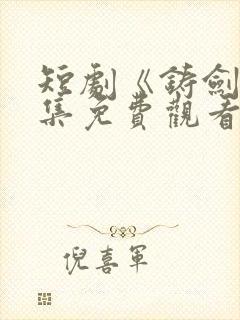 短劇《鋳劍
集免費觀看
倪喜軍